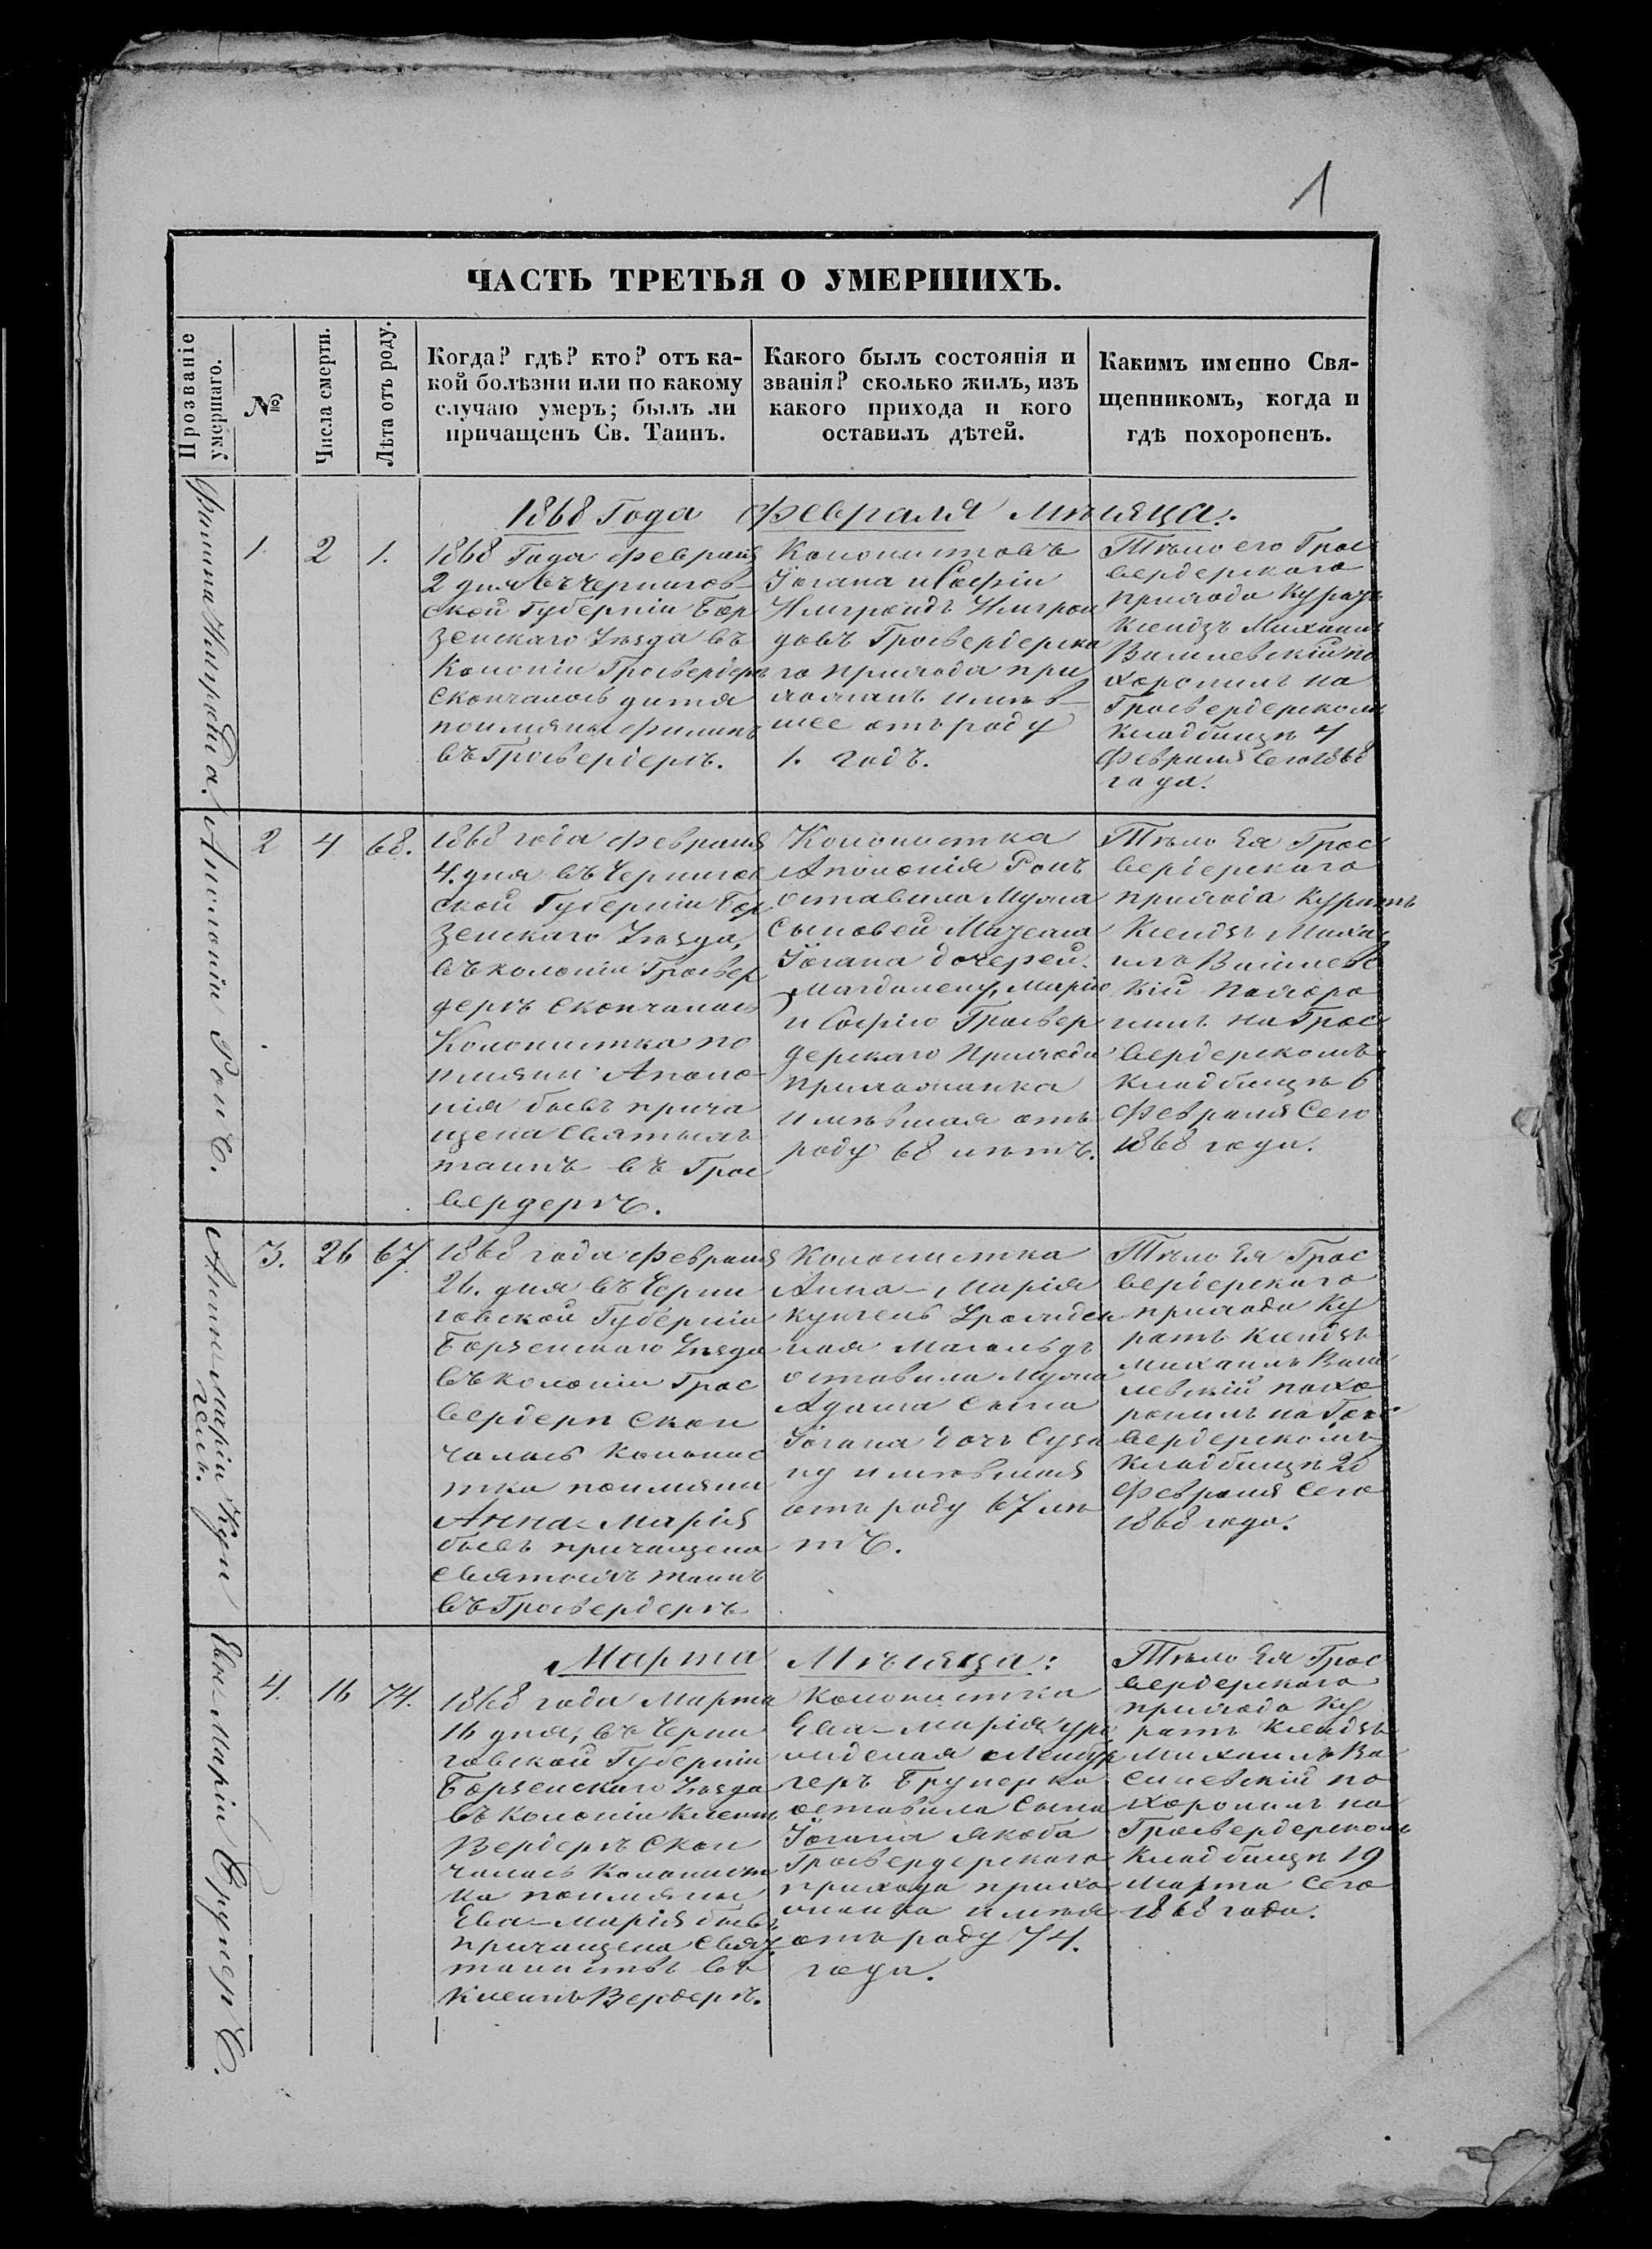 1
ЧАСТЬ ТРЕТЬЯ О УМЕРШИХЪ.
Прозваніе
умершаго.
№
Числа смерти.
Лѣта отъ роду.
Когда? гдѣ? кто? отъ ка-
кой болѣзни или по какому
случаю умеръ; былъ ли
причащенъ Св. Таинъ.
Какого былъ состоянія и
званія? сколько жилъ, изъ
какого прихода и кого
оставилъ дѣтей.
Какимъ именно Свя-
щенникомъ, когда и
гдѣ похороненъ.
1868 Года Февраля мѣсяца.
Филипа
1.
2
1.
1868 Года Февраля
2 дня въ Чернигов-
ской Губерніи Бор
зенскаго Уѣзда въ
Колоніи Гросвердерѣ
Скончалось дитя
по имяни Филипъ
въ Гросвердерѣ.
Колонистовъ
Іогана и Софіи
довъ Гросвердерска
го Прихода при
хожанъ имѣв-
шее отъ роду
1. годъ.
Тѣло его Грос
вердерскаго
Прихода Куратъ
Ксендзъ Михаилъ
Василевскій по
хоронилъ на
Гросвердерскомъ
Кладбищѣ 4
Февраля Сего 1868
года.
Аполоніи Ронъ.
2
4
68.
1868 года Февраля
4. дня въ Чернигов
ской Губерніи Бор
зенскаго Уѣзда,
въ колоніи Гросвер
дерѣ Скончалась
Колонистка по
имяни Аполо-
нія бывъ прича
щена Святыхъ
таинъ въ Грос
вердерѣ.
Колонистка
Аполонія Ронъ
оставила Мужа
Сыновей
Іогана дочерей
Магдалену, Марію
и Софію Гросвер
дерскаго Прихода
прихожанка
имѣвшая отъ
роду 68 лѣтъ.
Тѣло Ея Грос
вердерскаго
прихода Куратъ
Ксендзъ Миха
илъ Василевс
кій Похоро
нилъ на Грос
вердерскомъ
Кладбищѣ 6
Февраля Сего
1868 года.
Анны-Маріи Кун
гель.
3.
26
67.
1868 года Февраля
26. дня въ Черни
говской Губерніи
Борзенскаго Уѣзда
въ колоніи Грос
вердерѣ Скон
чалась Колонис
тка по имяни
Анна-Марія
бывъ причащена
Святыхъ таинъ
въ Гросвердерѣ
Колонистка
Анна-Марія
Кунгель Урожден
ная
оставила Мужа
Адама Сына
Іогана дочь Суза
ну имѣвшая
отъ роду 67 лѣ
тъ.
Тѣло Ея Грос
вердерскаго
прихода Ку
ратъ Ксендзъ
Михаилъ Васи
левскій похо
ронилъ на Грос
вердерскомъ
Кладбищѣ 28
Февраля Сего
1868 года.
Марта Мѣсяца:
Евы-Маріи Брунеръ.
4.
16
74.
1868 года Марта
16 дня, въ Черни
говской Губерніи
Борзенскаго Уѣзда
въ Колоніи Клейнъ
Вердерѣ Скон
чалась Колонист
ка по имяни
Ева-Марія бывъ
причащена Свят.
таинствъ въ
Клейнъ Вердерѣ.
Колонистка
Ева-Марія уро
жденная
оставила Сына
Іогана Якоба
Гросвердерскаго
прихода прихо
жанка имѣя
отъ роду 74.
года.
Тѣло Ея Грос
вердерскаго
прихода Ку
ратъ Ксендзъ
Михаилъ Ва
силевскій по
хоронилъ на
Гросвердерскомъ
Кладбищѣ 19
Марта Сего
1868 года.